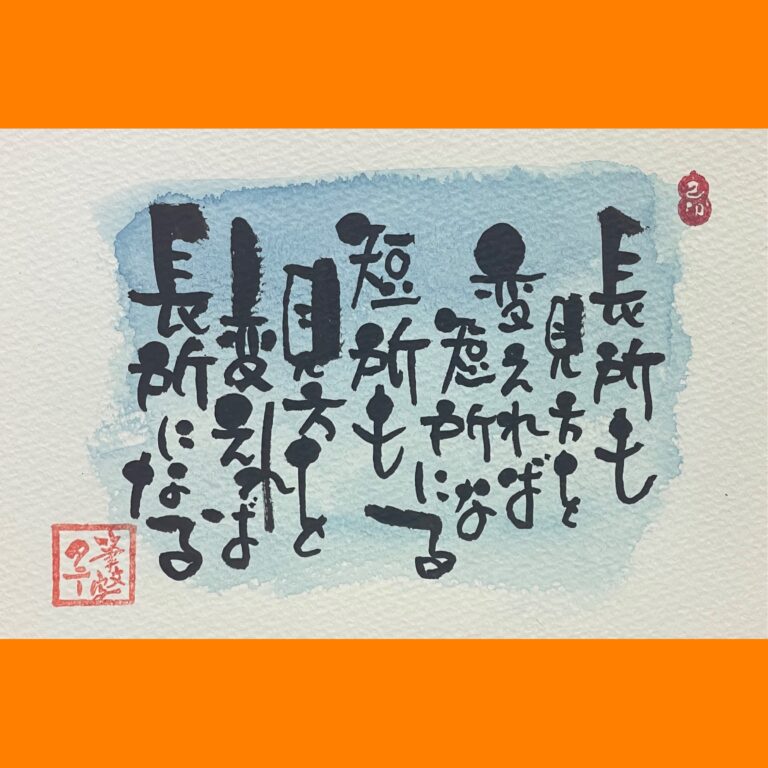 長所も
見方を
変えれば
短所になる
短所も
見方を
変えれば
長所になる